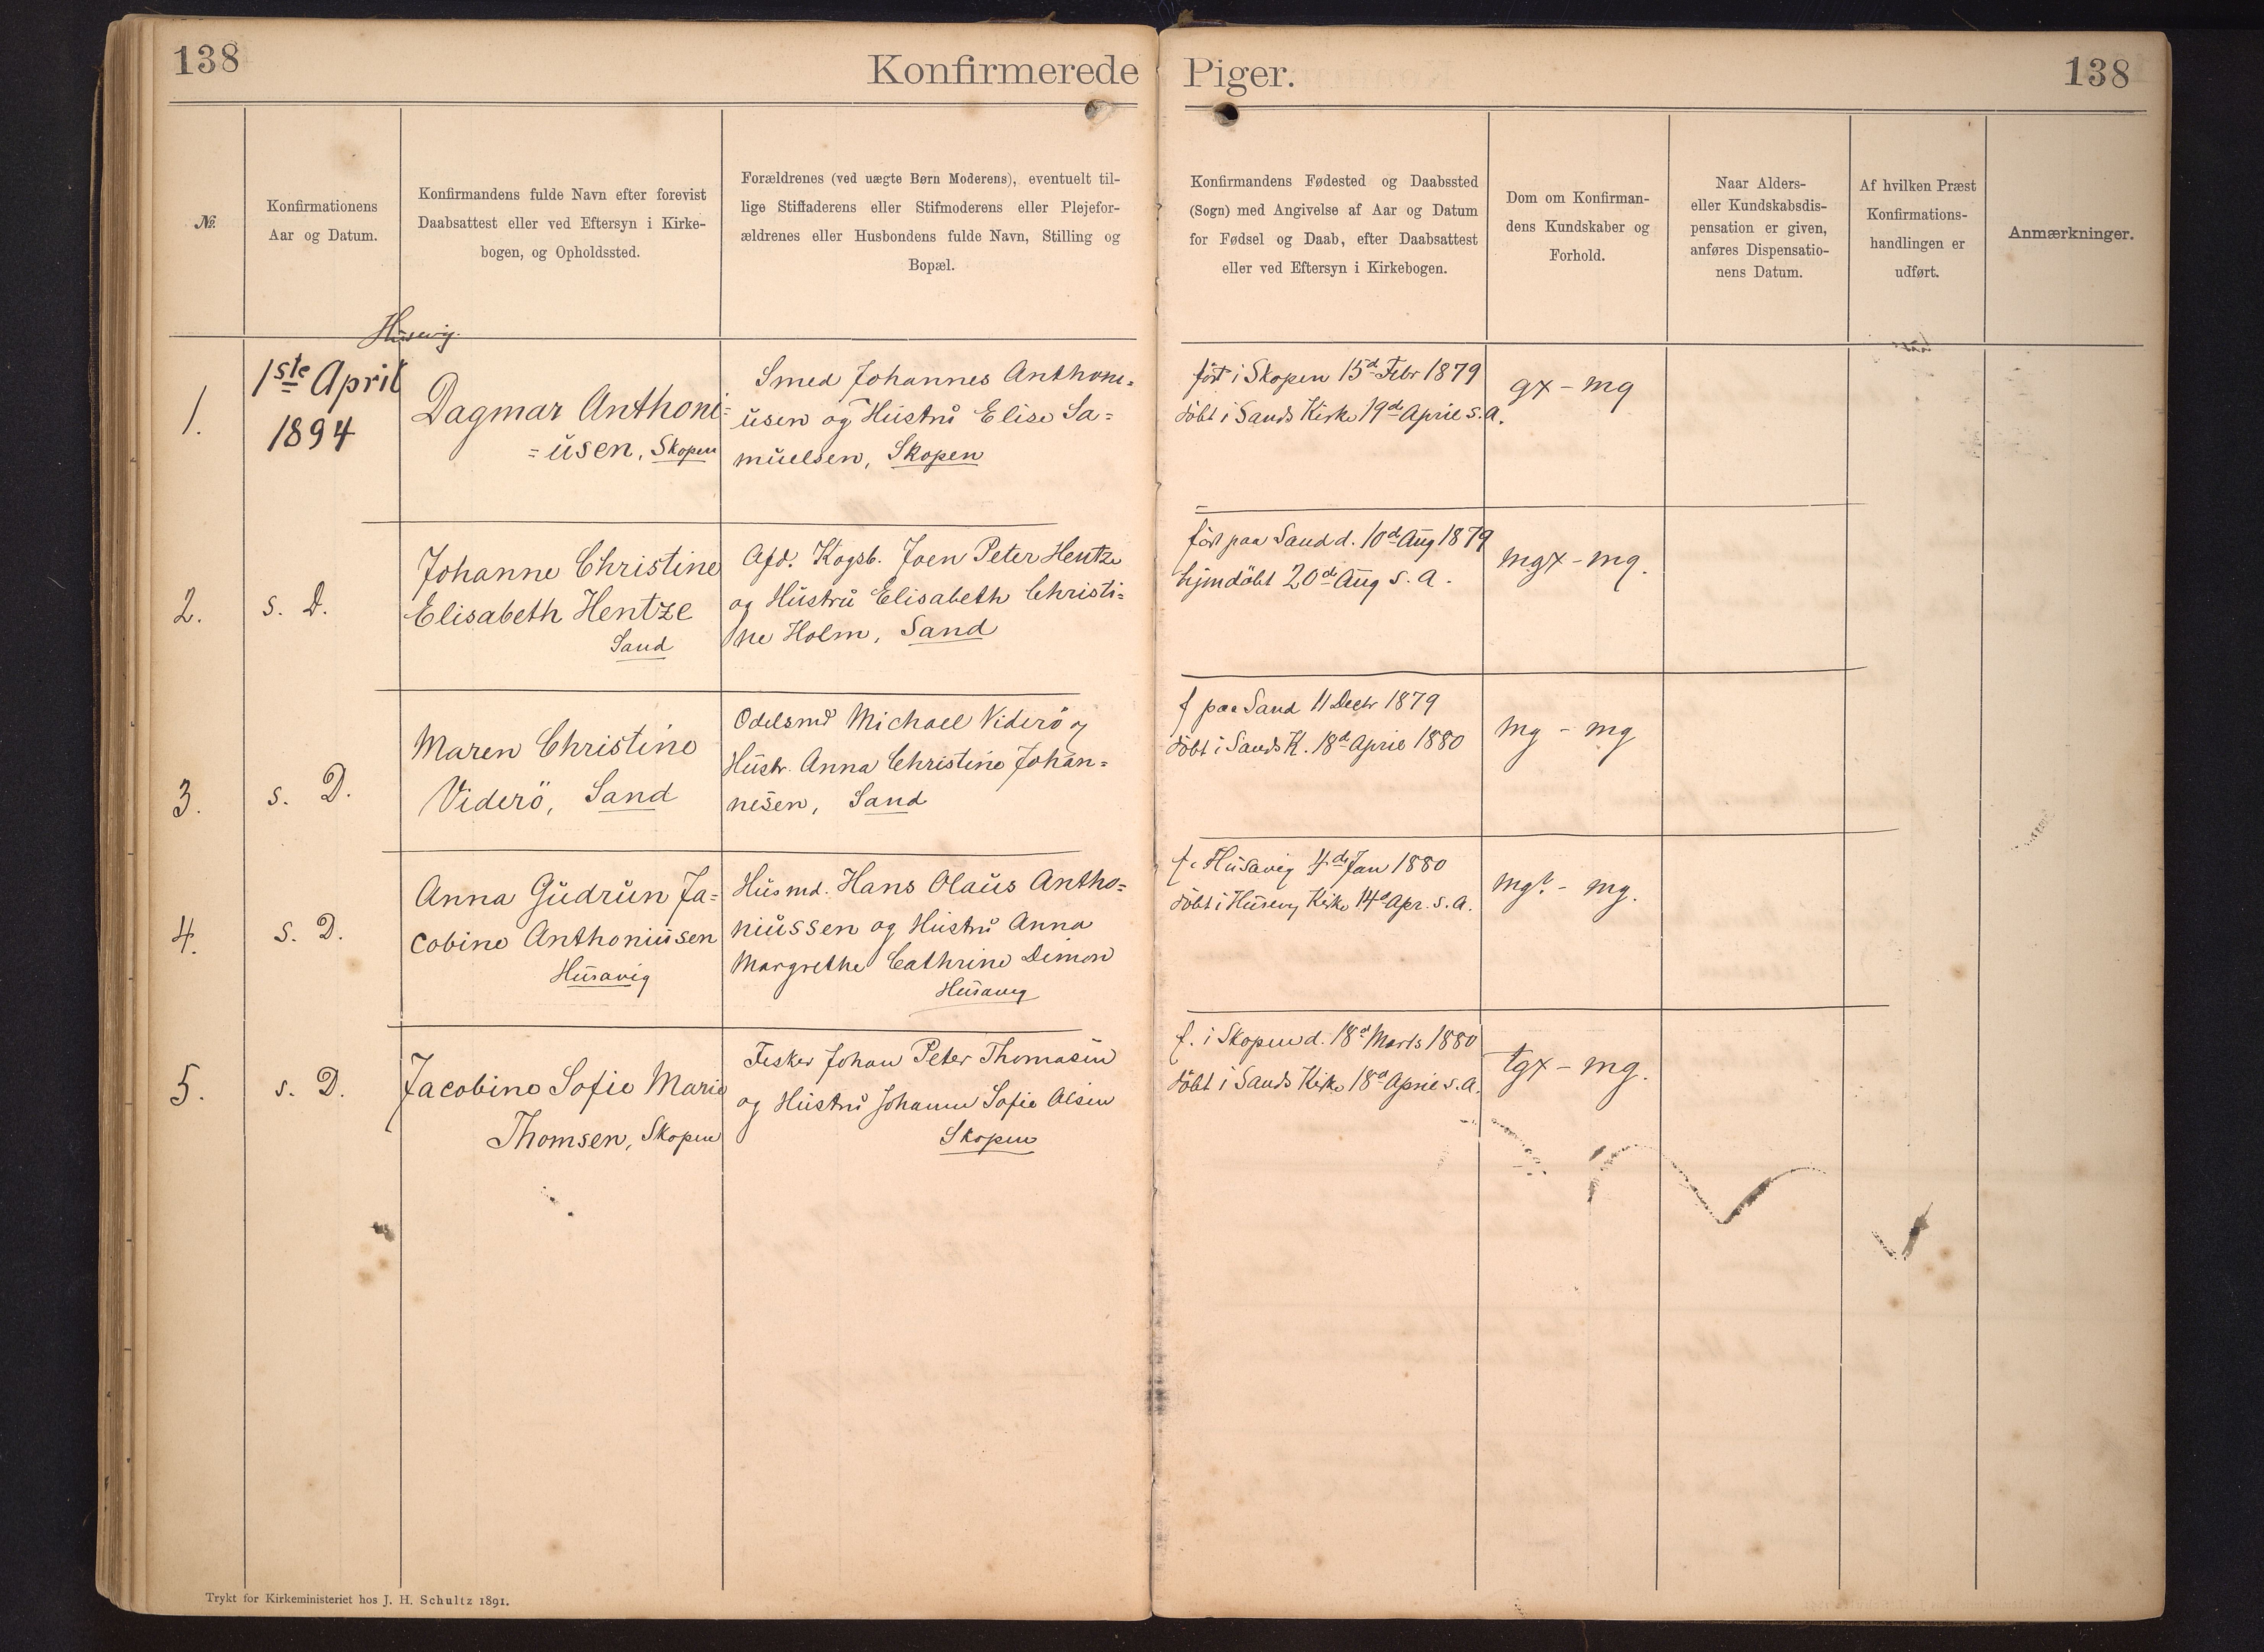 138
Konfirmerede Piger.
138
№
Konfirmationens
Aar og Datum.
Konfirmandens fulde Navn efter forevist
Daabsattest eller ved Eftersyn i Kirke-
bogen, og Opholdssted.
Forældrenes (ved uægte Børn Moderens), eventuelt til-
lige Stiffaderens eller Stifmoderens eller Plejefor-
ældrenes eller Husbondens fulde Navn, Stilling og
Bopæl.
Konfirmandens Fødested og Daabssted
(Sogn) med Angivelse af Aar og Datum
for Fødsel og Daab, efter Daabsattest
eller ved Eftersyn i Kirkebogen.
Dom om Konfirman-
dens Kundskaber og
Forhold.
Naar Alders-
eller Kundskabsdis-
pensation er given,
anføres Dispensatio-
nens Datum.
Af hvilken Præst
Konfirmations-
handlingen er
udført.
Anmærkninger.
Husevig.
1.
1ste April
1894
Dagmar Anthoni=
=usen, Skopen
Smed Johannes Anthoni=
usen og Hustru Elise Sa=
muelsen, Skopen
født i Skopen 15d Febr 1879
döbt i Sands Kirke 19d April s. a.
gx - mg
2.
s. D.
Johanne Christine
Elisabeth Hentze
Sand
Afd. Kogsb. Joen Peter Hentze
og Hustru Elisabeth Christi=
ne Holm, Sand
födt paa Sand d. 10d Aug 1879
hjmdöbt 20d Aug s. a.
mgx - mg.
3.
s. D.
Maren Christine
Viderö, Sand
Odelsmd Michael Viderö og
Hustr. Anna Christine Johan=
nesen, Sand
f paa Sand 11 Decbr 1879
döbt i Sands K. 18d April 1880
mg - mg
4.
s. D.
Anna Gudrun Ja=
cobine Anthoniusen
Husavig
Husmd. Hans Olaus Antho=
niussen og Hustru Anna
Margrethe Cathrine Dimon
Husavig
f. i Husavig 4d Jan 1880
döbt i Husevig Kirke 14d Apr. s. a.
mg - mg.
5.
s. D.
Jacobine Sofie Marie
Thomsen, Skopen
Fisker Johan Peter Thomasen
og Hustru Johanne Sofie Olsen
Skopen
f. i Skopen d. 18d Marts 1880
döbt i Sands Kirke 18d April s. a.
tgx - mg.
Trykt for Kirkeministeriet hos J. H. Schultz 1891.